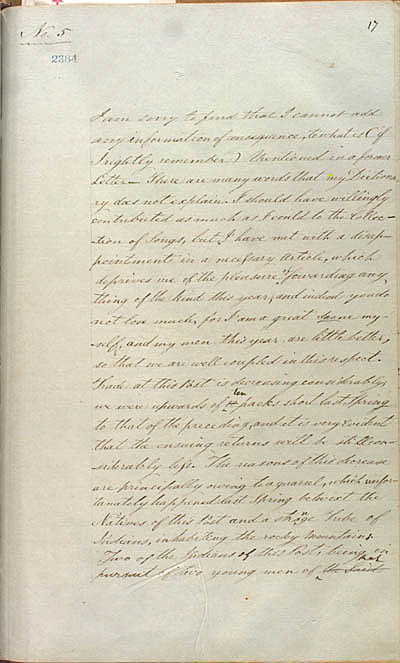 No. 5
17
2364
I am sorry to find that I cannot add
any information of consequence, to what is (if
I rightly remember) Mentioned in a former
Letter — There are many words that my Dictiona-
ry does not explain. I should have willingly
contributed as much as I could to the Collec-
-tion of Songs, but I have met with a disap-
pointment in a necessary Article, which
deprives me of the pleasure of forwarding any
thing of the kind this year, and indeed you do
not lose much, for I am a great my-
-self, and my men this year are little better,
so that we are well coupled in this respect.
Trade at this Post is decreasing considerably,
we were upwards of ten packs short last Spring
to that of the preceding, and it is very evident
that the ensuing returns will be still con-
-siderably less. The reasons of this decrease
are principally owing to a quarrel, which unfor-
tunately happened last Spring between the
Natives of this Post and a strange Tribe of
Indians, inhabiting the rocky Mountains.
Two of the Indians of this Post, being in
pursuit of two young men of the said